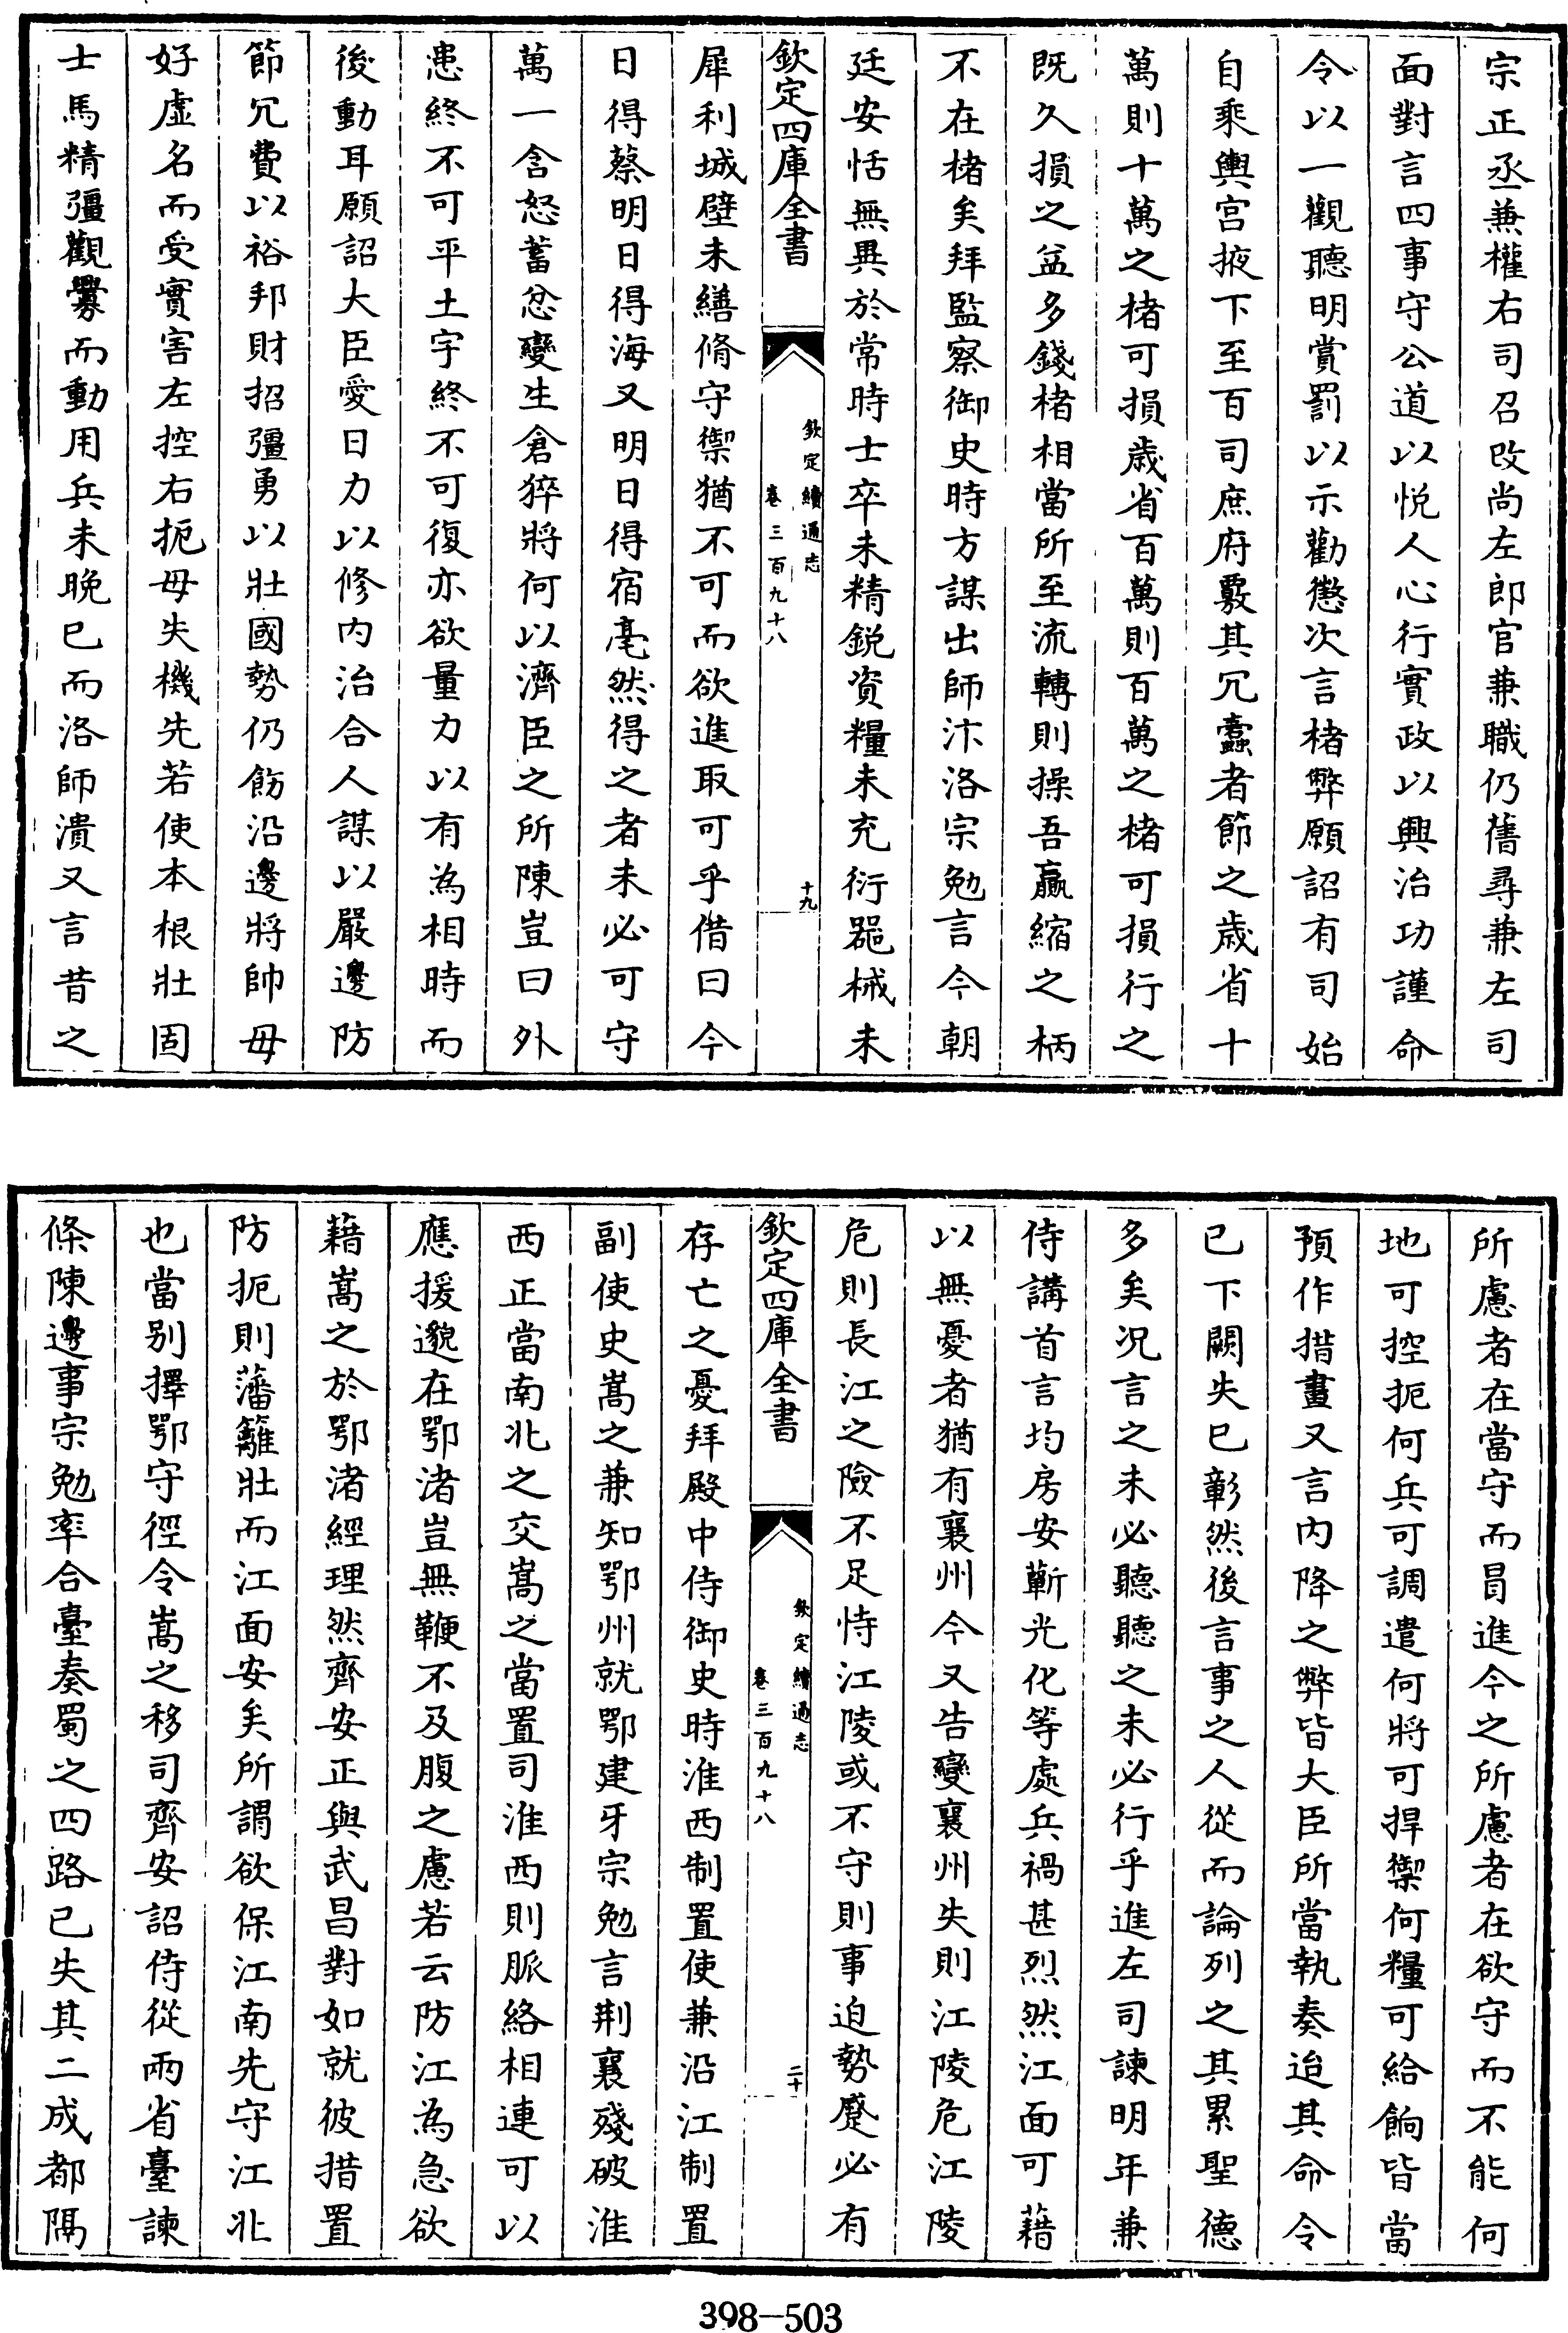 宗正丞兼權右司召改尚左郎官兼職仍舊尋兼左司
面對言四事守公道以悦人心行實政以興治功謹命
令以一觀聽明賞罰以示勸懲次言楮弊願詔有司始
自乘輿宫掖下至百司庶府覈其冗蠹者節之歲省十
萬則十萬之楮可損歲省百萬則百萬之楮可損行之
既久損之益多錢楮相當所至流轉則操吾贏縮之柄
不在楮矣拜監察御史時方謀出師汴洛宗勉言今朝
廷安恬無異於常時士卒未精銳資糧未充衍器械未
欽定四庫全書
欽定續通志
卷三百九十八
十九
犀利城壁未繕脩守禦猶不可而欲進取可乎借曰今
日得蔡明日得海又明日得宿亳然得之者未必可守
萬一含怒蓄忿變生倉猝將何以濟臣之所陳豈曰外
患終不可平土宇終不可復亦欲量力以有為相時而
後動耳願詔大臣愛日力以修内治合人謀以嚴邊防
節冗費以裕邦財招彊勇以壯國勢仍飭沿邊將帥毋
好虛名而受實害左控右扼毋失機先若使本根壯固
士馬精彊觀釁而動用兵未晚已而洛師潰又言昔之
所慮者在當守而冒進今之所慮者在欲守而不能何
地可控扼何兵可調遣何將可捍禦何糧可給餉皆當
預作措畫又言内降之弊皆大臣所當執奏迨其命令
已下闕失已彰然後言事之人從而論列之其累聖德
多矣況言之未必聽聽之未必行乎進左司諫明年兼
侍講首言均房安蘄光化等處兵禍甚烈然江面可藉
以無憂者猶有襄州今又告變襄州失則江陵危江陵
危則長江之險不足恃江陵或不守則事迫勢蹙必有
欽定四庫全書
欽定續通志
卷三百九十八
二十
存亡之憂拜殿中侍御史時淮西制置使兼沿江制置
副使史嵩之兼知鄂州就鄂建牙宗勉言荆襄殘破淮
西正當南北之交嵩之當置司淮西則脈絡相連可以
應援邈在鄂渚豈無鞭不及腹之慮若云防江為急欲
藉嵩之於鄂渚經理然齊安正與武昌對如就彼措置
防扼則藩籬壯而江面安矣所謂欲保江南先守江北
也當别擇鄂守徑令嵩之移司齊安詔侍從兩省臺諫
條陳邊事宗勉率合臺奏蜀之四路已失其二成都隔
398-503